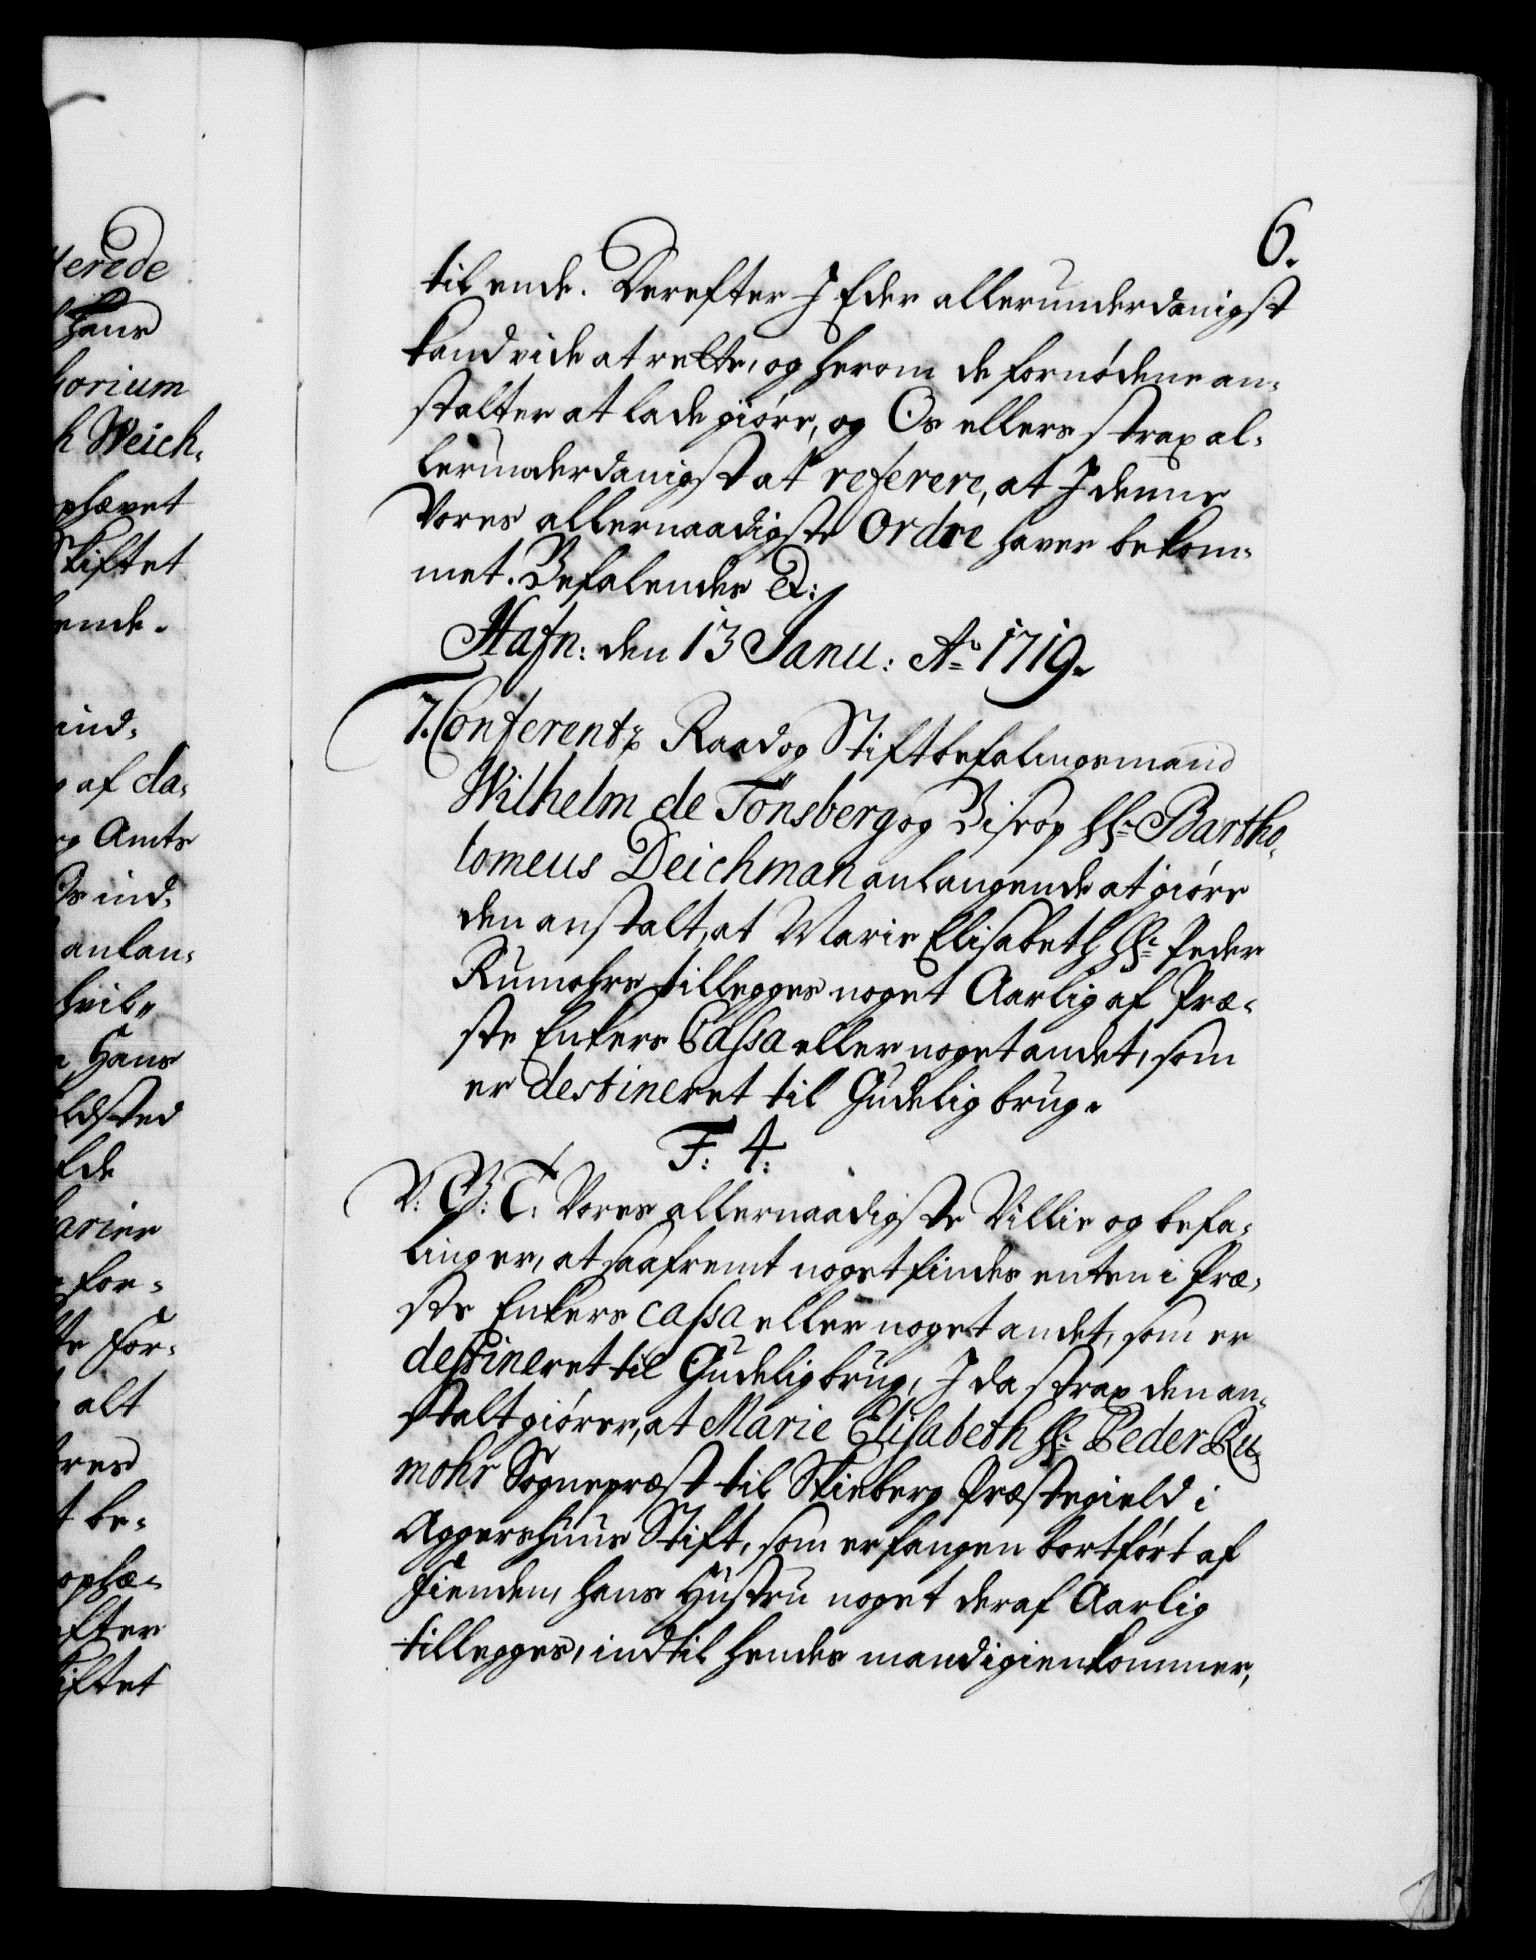 6.
til ende. Derefter I Eder allerunderdanigst
kand vide at rette, og herom de fornødene an-
stalter at lade giøre, og Os ellers strax al-
lerunderdanigst at referere, at I denne
Vores allernaadigste Ordre haver bekom-
met. Befalendes &:
Hafn: den 13 Janu: Ao 1719.
7. Conferentz Raad og Stiftbefalingsmand
Wilhelm de Tönsberg og Bisrop Hr. Bartho-
lomeus Deichman anlangende at giøre
den anstalt, at Marie Elisabeth Hr. Peder
Rumohrs tillegges noget Aarlig af Præ-
ste Enkers Cassa eller noget andet, som
er destineret til Gudelig brug.
F: 4:
V: G: T: Vores allernaadigste Villie og befa-
ling er, at saafremt noget findes enten i Præ-
ste Enkers cassa eller noget andet, som er
destineret til Gudelig brug, I da strax den an-
stalt giører, at Marie Elisabeth Hr. Peder Ru-
mohr Sognepræst til Skieberg Præstegield i
Aggershuus Stift, som er fangen bortført af
Fienden, hans Hustru noget deraf Aarlig
tillegges, indtil hendes mand igien kommer,
erede
Hans
horium
h Weich-
phævet
Stiftet
ende.
ind-
af da-
rg Amts
Os ind-
anlan-
Hans
ldsted
arier
for-
te for-
alt
t be-
ophæ-
efter
iftet